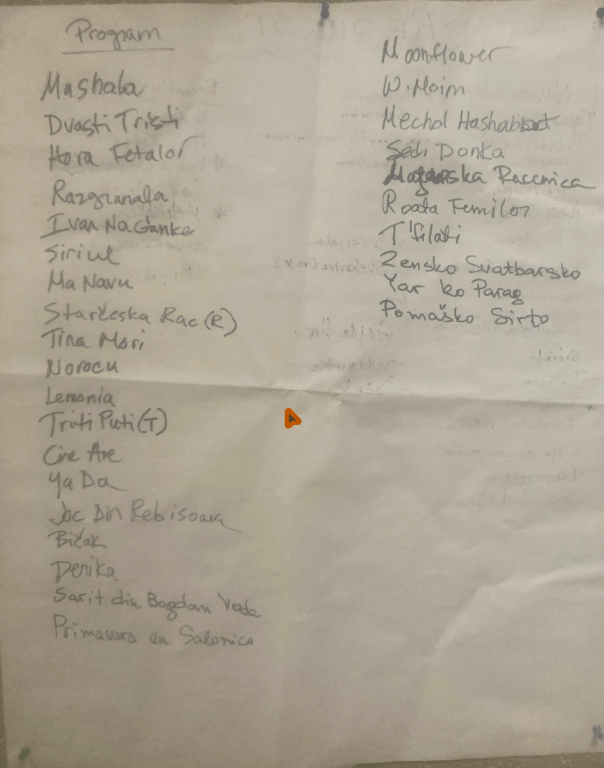 Program
Mashala
Dvasti Tristi
Hora Fetalor
Razgranala
Ivan Na Ganke
Siriul
Ma Navu
Starčeska Rac (R)
Tina Mori
Norocu
Lemonia
Truti Puti (T)
Cine Are
Ya Da
Joc Din Rebisoara
Bičak
Denika
Sarit din Bogdan Voda
Primavera en Salonica
Moonflower
W. Moim
Mechol Hashabbat
Sedi Donka
Račenica
Roata Femilor
T'filati
Zensko Svatbarsko
Yar ko Parag
Pomaško Sirto